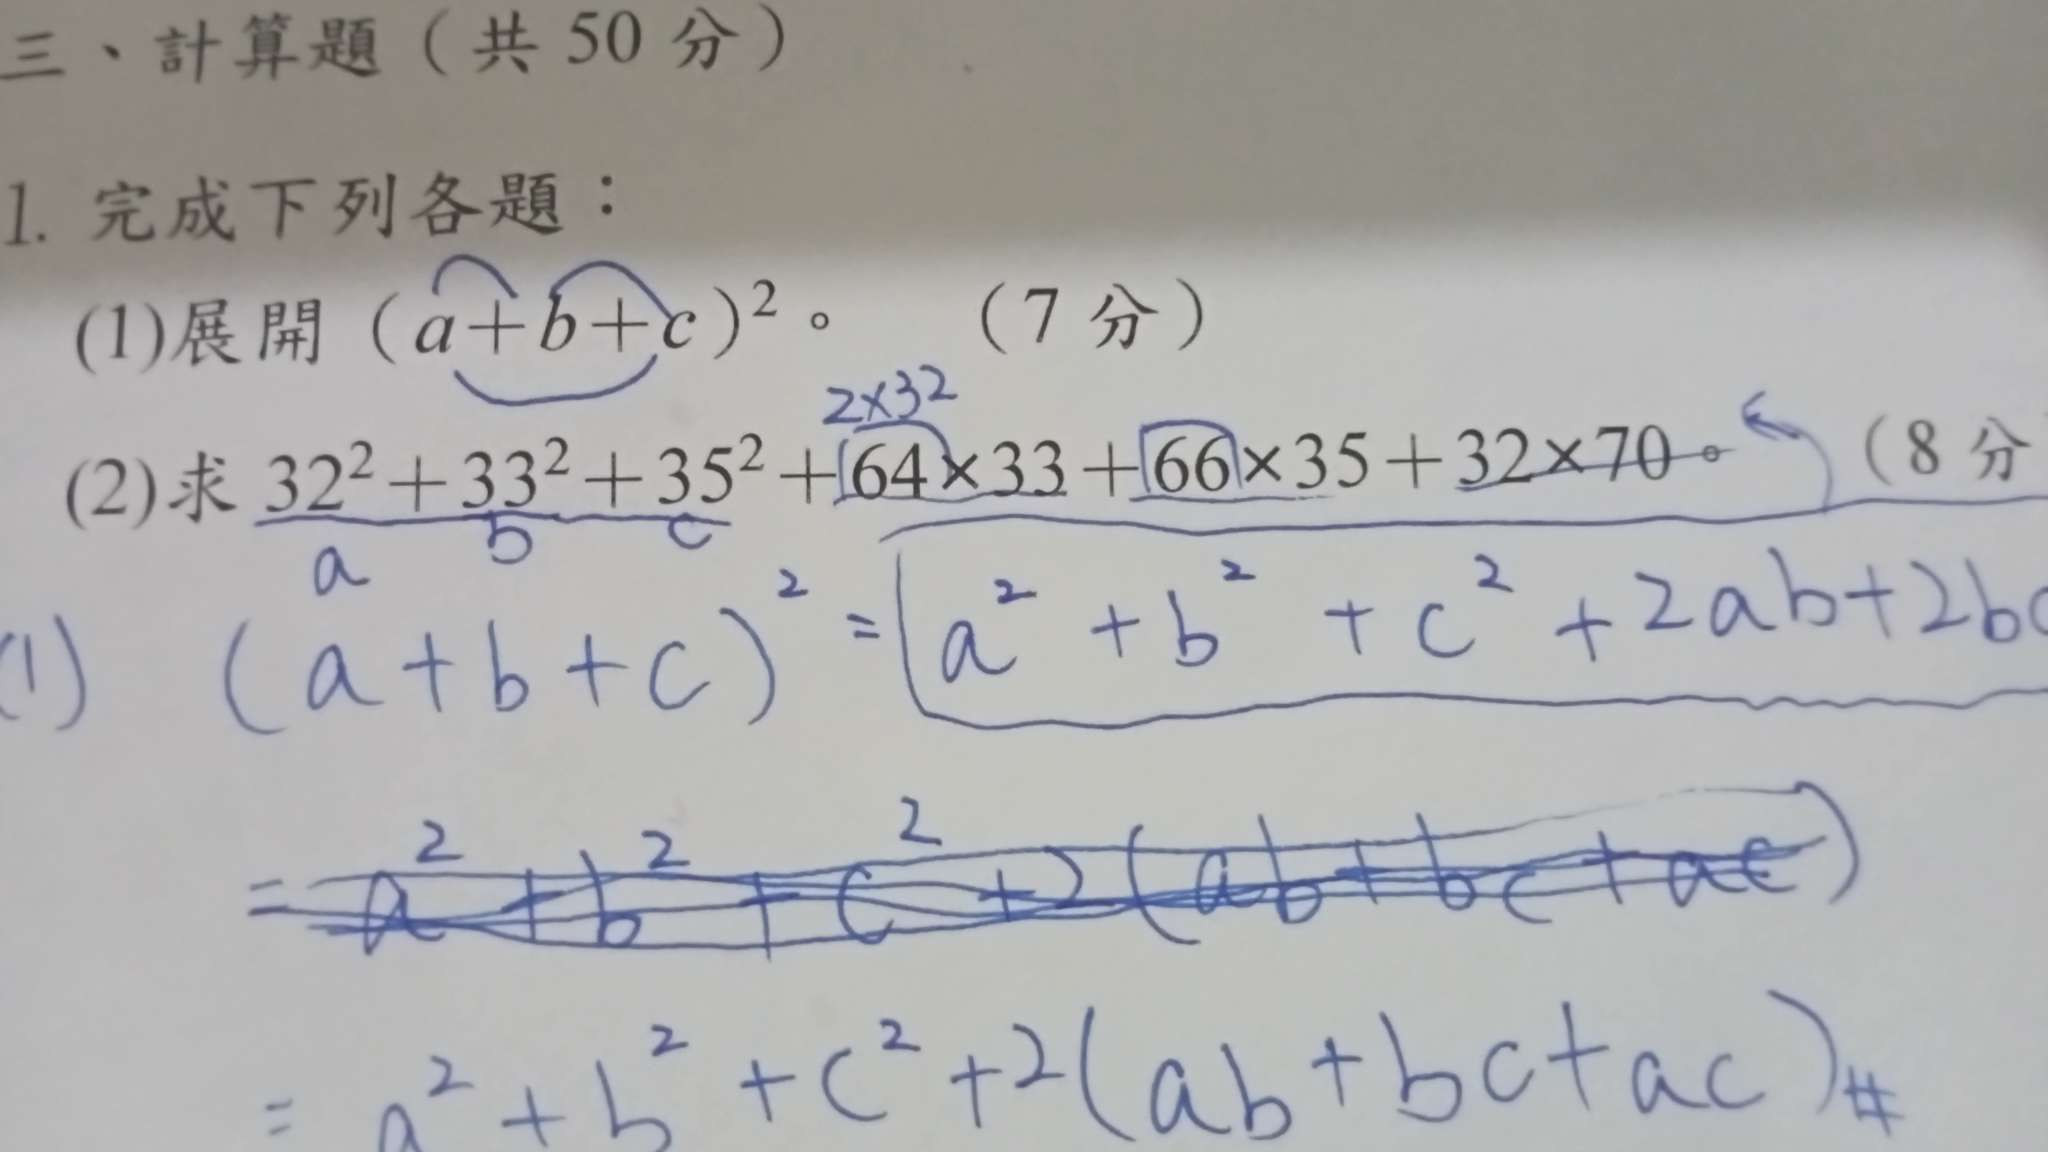 三、計算題（共 50 分）
1. 完成下列各題：
(1)展開（a+b+c）²。 （7 分）
2×32
(2)求 32²+33²+35²+64×33+66×35+32×70。 （8 分
a b c
(1) (a+b+c)² = a²+b²+c²+2ab+2bc
= a²+b²+c²+2(ab+bc+ac)
= a²+b²+c²+2(ab+bc+ac)#